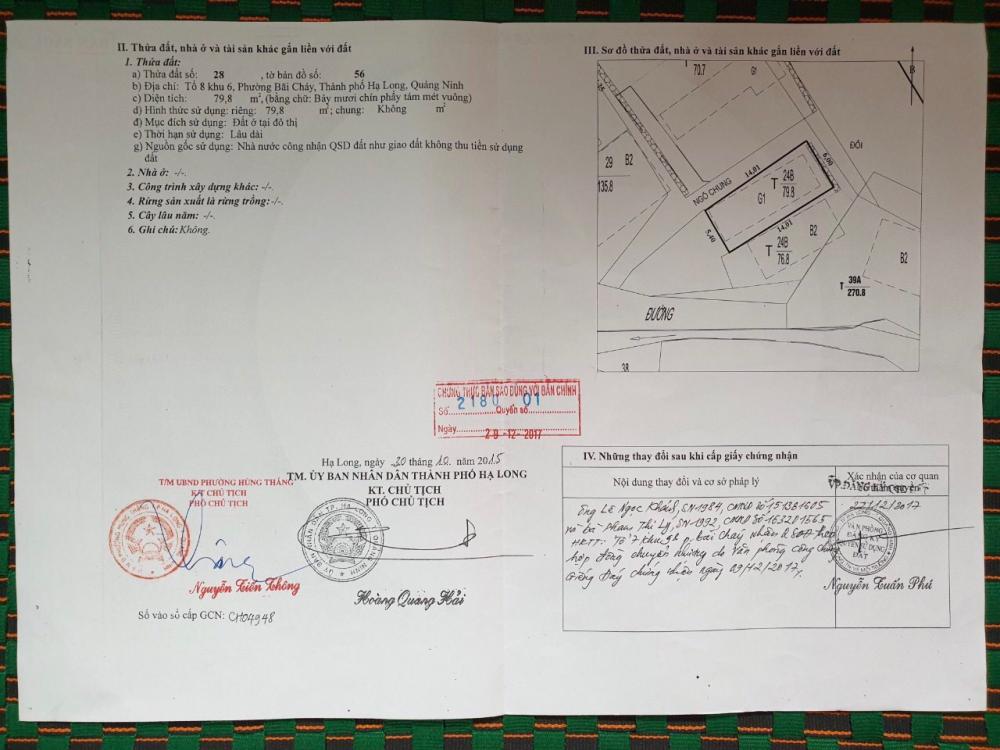 II. Thửa đất, nhà ở và tài sản khác gắn liền với đất
1. Thửa đất:
a) Thửa đất số: 28 , tờ bản đồ số: 56
b) Địa chỉ: Tổ 8 khu 6, Phường Bãi Cháy, Thành phố Hạ Long, Quảng Ninh
c) Diện tích: 79,8 m², (bằng chữ: Bảy mươi chín phẩy tám mét vuông)
d) Hình thức sử dụng: riêng: 79,8 m²; chung: Không m²
đ) Mục đích sử dụng: Đất ở tại đô thị
e) Thời hạn sử dụng: Lâu dài
g) Nguồn gốc sử dụng: Nhà nước công nhận QSD đất như giao đất không thu tiền sử dụng
đất
2. Nhà ở: -/-.
3. Công trình xây dựng khác: -/-.
4. Rừng sản xuất là rừng trồng: -/-.
5. Cây lâu năm: -/-.
6. Ghi chú: Không.
III. Sơ đồ thửa đất, nhà ở và tài sản khác gắn liền với đất
70.7
G1
B
ĐỒI
29 B2
135.8
NGÕ CHUNG
14,01
6,00
T 24B
79.8
G1
5,40
14,01
T 24B
76.8
B2
B2
T 39A
270.8
ĐƯỜNG
38
CHỨNG THỰC BẢN SAO ĐÚNG VỚI BẢN CHÍNH
Số 2180 Quyển số 01
Ngày 29-12-2017
Hạ Long, ngày 30 tháng 10 năm 2015
TM. ỦY BAN NHÂN DÂN THÀNH PHỐ HẠ LONG
KT. CHỦ TỊCH
PHÓ CHỦ TỊCH
Hoàng Quang Hải
T/M UBND PHƯỜNG HÙNG THẮNG
KT CHỦ TỊCH
PHÓ CHỦ TỊCH
Nguyễn Tiến Thông
Số vào sổ cấp GCN: CH04948
IV. Những thay đổi sau khi cấp giấy chứng nhận
Nội dung thay đổi và cơ sở pháp lý
Xác nhận của cơ quan
Ông Lê Ngọc Khánh, SN 1984, CMND số 151381605
Phan Thị Ly, SN 1992, CMND số
HKTT: Bãi Cháy nhận
hợp đồng chuyển nhượng do Văn phòng công chứng
chứng thực ngày 09/12/2017
27/12/2017
VĂN PHÒNG
ĐĂNG KÝ
QUYỀN SỬ DỤNG
ĐẤT
Nguyễn Tuấn Phú